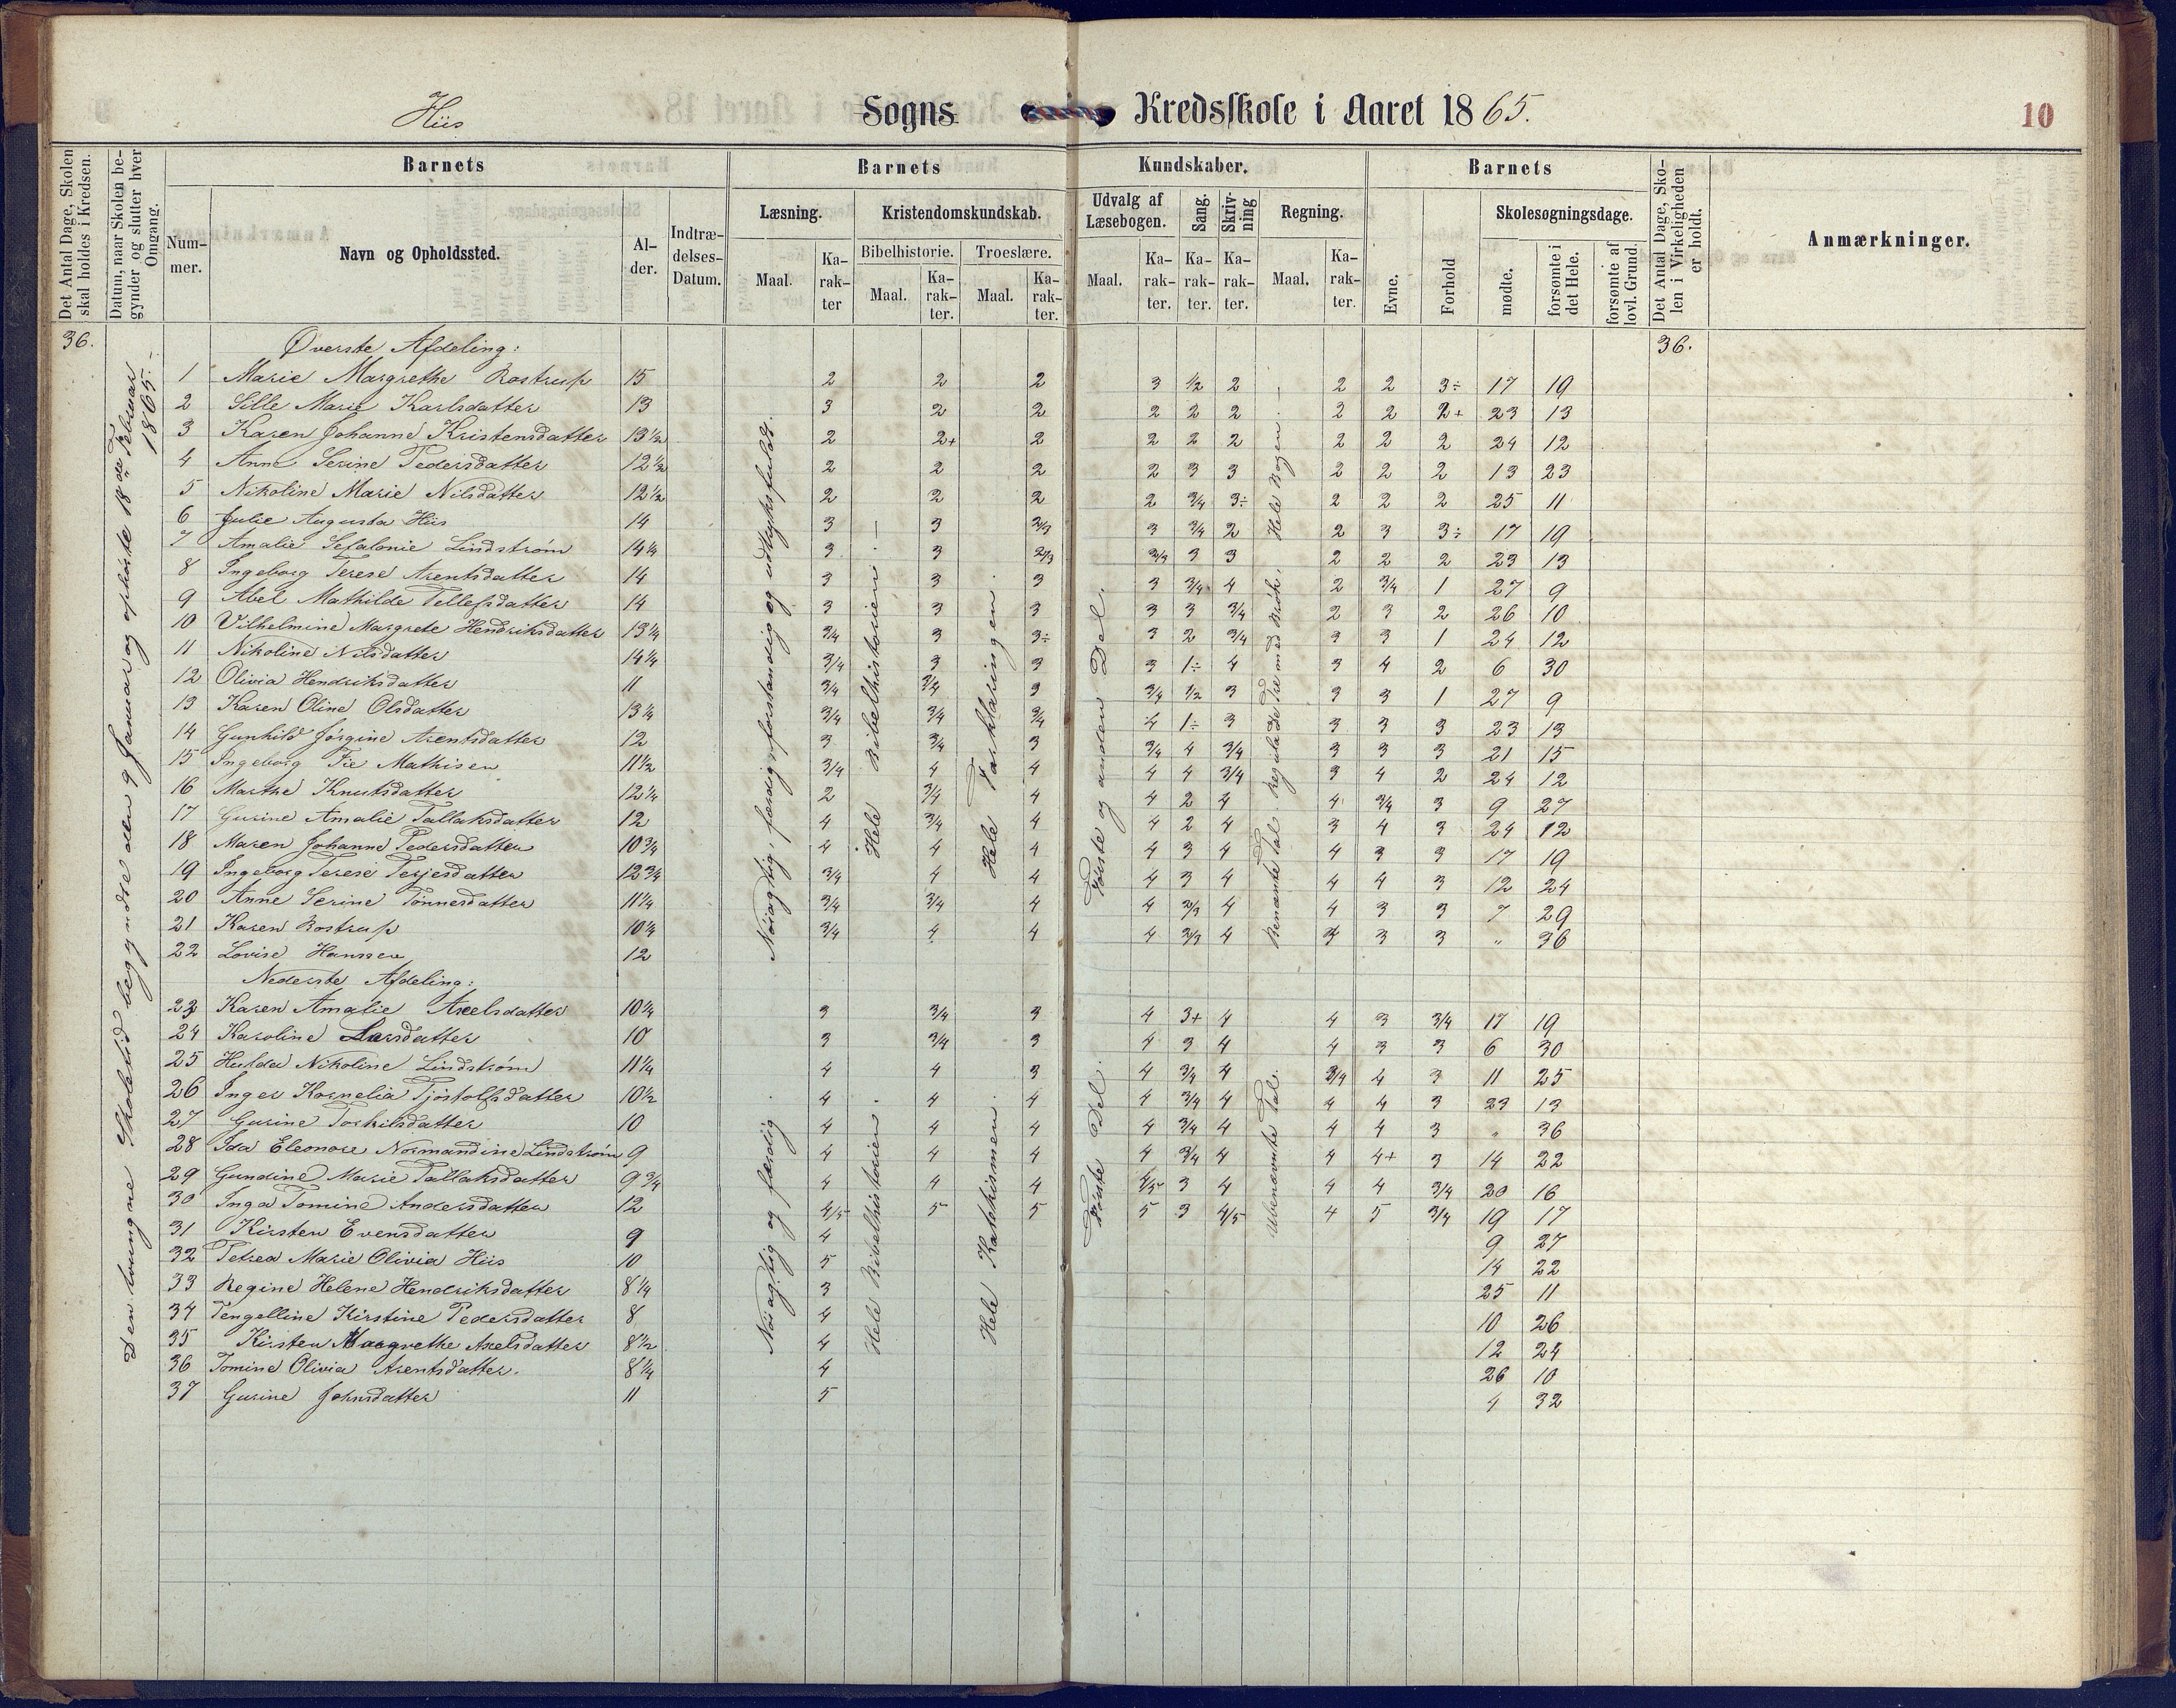 Hiis Sogns Kredsskole i Aaret 1865. 10
Det Antal Dage, Skolen skal holdes i Kredsen.
Datum, naar Skolen begynder og slutter hver Omgang.
Barnets Barnets Kundskaber. Barnets
Nummer. Navn og Opholdssted. Alder. Indtrædelses-Datum.
Læsning. Kristendomskundskab. Udvalg af Læsebogen. Sang. Skrivning Regning. Skolesøgningsdage.
Bibelhistorie. Troeslære.
Maal. Karakter Maal. Karakter. Maal. Karakter. Maal. Karakter. Karakter. Karakter. Maal. Karakter. Evne. Forhold mødte. forsømte i det Hele. forsømte af lovl. Grund.
Det Antal Dage, Skolen i Virkeligheden er holdt.
Anmærkninger.
36. Øverste Afdeling: 36.
Den tvungne Skoletid begyndte den 9 Januar og ophörte 18de Februar 1865.
Nöiagtig, færdig, forstandig og udtryksfuld.
Hele Bibelhistorien.
Hele Forklaringen.
Förste og anden Del.
Benævnte Tal. Reguladetre med Brök. Hele Bogen.
1 Marie Margrethe Rostrup 15 2 2 2 3 1/2 2 2 2 3÷ 17 19
2 Sille Marie Karlsdatter 13 3 2 2 2 2 2 2 2 2+ 23 13
3 Karen Johanne Kristensdatter 13 1/2 2 2+ 2 2 2 2 2 2 2 24 12
4 Anne Serine Pedersdatter 12 1/2 2 2 2 2 3 3 2 2 2 13 23
5 Nikoline Marie Nilsdatter 12 1/2 2 2 2 2 3/4 3÷ 2 2 2 25 11
6 Julie Augusta Hiis 14 3 3 2/3 3 3/4 2 2 3 3÷ 17 19
7 Amalie Sefalonie Lindström 14 1/4 3 3 2/3 2/3 3 3 2 2 2 23 13
8 Ingeborg Terese Arentsdatter 14 3 3 3 3 3/4 4 2 3/4 1 27 9
9 Abel Mathilde Tellefsdatter 14 3 3 3 3 3 3/4 2 3 2 26 10
10 Vilhelmine Margrete Hendriksdatter 13 1/4 3/4 3 3÷ 3 2 3/4 3 3 1 24 12
11 Nikoline Nilsdatter 14 1/4 3/4 3 3 3 1÷ 4 3 4 2 6 30
12 Olivia Hendriksdatter 11 3/4 3/4 3 3/4 1/2 3 3 3 1 27 9
13 Karen Oline Olsdatter 13 1/4 3/4 3/4 3/4 4 1÷ 3 3 3 3 23 13
14 Gunhild Jörgine Arentsdatter 12 3 3/4 3 3/4 4 3/4 3 3 3 21 15
15 Ingeborg Fie Mathisen 11 1/2 3/4 4 4 4 4 3/4 3 4 2 24 12
16 Marthe Knutsdatter 12 1/4 2 3/4 4 4 2 4 4 3/4 3 9 27
17 Gurine Amalie Tallaksdatter 12 4 3/4 4 4 2 4 3 4 3 24 12
18 Maren Johanne Pedersdatter 10 3/4 4 4 4 4 3 4 4 3 3 17 19
19 Ingeborg Terese Terjesdatter 12 3/4 3/4 4 4 4 3 4 4 4 3 12 24
20 Anne Serine Tönnesdatter 11 1/4 3/4 3/4 4 4 2/3 4 4 3 3 7 29
21 Karen Rostrup 10 1/4 3/4 4 4 4 2/3 4 3 3 3 " 36
22 Lovise Hanssen 12
Nederste Afdeling:
Nöiagtig og færdig
Hele Bibelhistorien.
Hele Katekismen.
Förste Del.
Ubenævnte Tal.
23 Karen Amalie Axelsdatter 10 1/4 3 3/4 3 4 3+ 4 4 3 3/4 17 19
24 Karoline Larsdatter 10 3 3/4 3 4 3 4 4 3 3 6 30
25 Hulda Nikoline Lindström 11 1/4 4 4 3 4 3/4 4 3/4 4 3 11 25
26 Inger Kornelia Tjöstolfsdatter 10 1/2 4 4 4 4 3/4 4 4 4 3 23 13
27 Gurine Torkilsdatter 10 4 4 4 4 3/4 4 4 4 3 " 36
28 Ida Eleonore Normandine Lindström 9 4 4 4 4 3/4 4 4 4+ 3 14 22
29 Gundine Marie Tallaksdatter 9 3/4 4 4 4 4/5 3 4 4 4 3/4 20 16
30 Inga Tomine Andersdatter 12 4/5 5 5 5 3 4/5 4 5 3/4 19 17
31 Kirsten Evensdatter 9 4 9 27
32 Petrea Marie Olivia Hiis 10 5 14 22
33 Regine Helene Hendriksdatter 8 1/4 3 25 11
34 Tengelline Kirstine Pedersdatter 8 4 10 26
35 Kirsten Margrethe Axelsdatter 8 1/2 4 12 24
36 Tomine Olivia Arentsdatter. 8 1/4 4 26 10
37 Gurine Johnsdatter 11 5 4 32